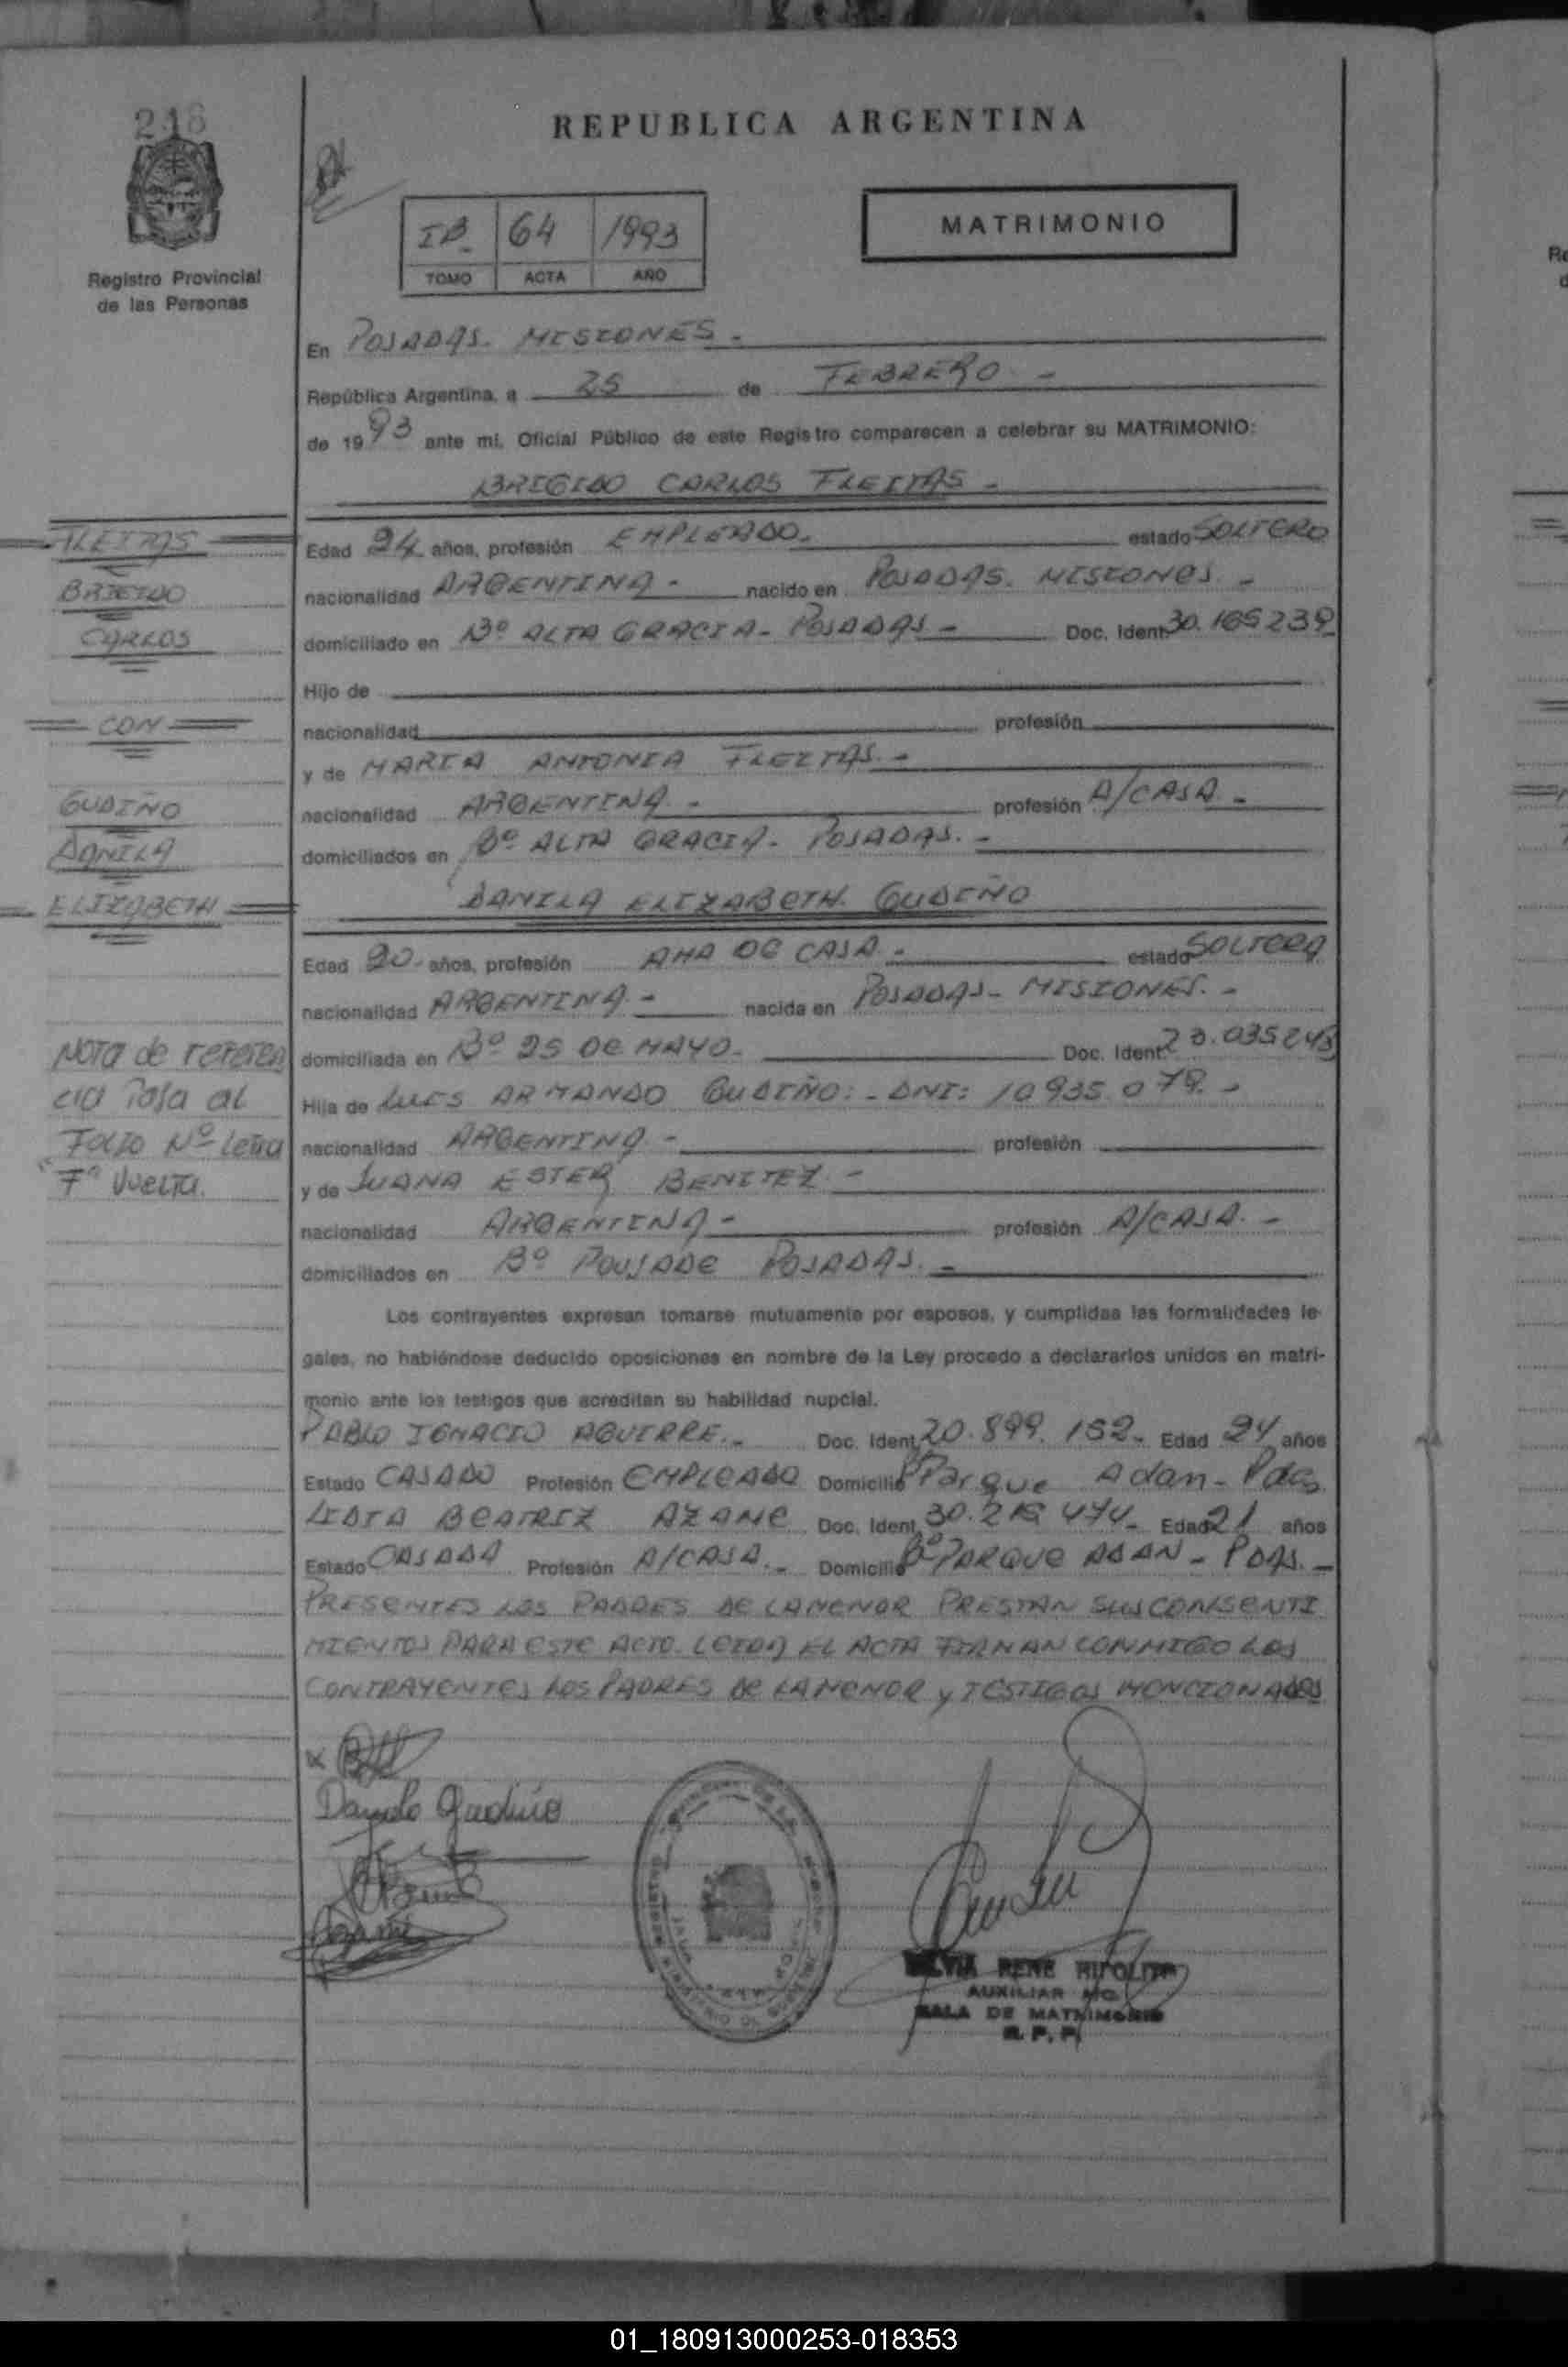 248
REPUBLICA ARGENTINA
IB 64 1993
TOMO ACTA AÑO
MATRIMONIO
Registro Provincial
de las Personas
En POSADAS. MISIONES.-
República Argentina, a 25 de FEBRERO.-
de 1993 ante mi, Oficial Público de este Registro comparecen a celebrar su MATRIMONIO:
BRIGIDO CARLOS FLEITAS.-
FLEITAS
BRIGIDO
CARLOS
CON
GUDIÑO
DANILA
ELIZABETH
Nota de referen
cia Pasa al
Folio Nº Letra
"F" Vuelta.
Edad 24 años, profesión EMPLEADO. estado SOLTERO
nacionalidad ARGENTINA.- nacido en POSADAS. MISIONES.-
domiciliado en Bº ALTA GRACIA- POSADAS- Doc. Ident. 30.165239
Hijo de
nacionalidad profesión
y de MARIA ANTONIA FLEITAS.-
nacionalidad ARGENTINA.- profesión A/CASA.-
domiciliados en Bº ALTA GRACIA- POSADAS.-
DANILA ELIZABETH. GUDIÑO
Edad 20- años, profesión AMA DE CASA.- estado SOLTERA
nacionalidad ARGENTINA.- nacida en POSADAS- MISIONES.-
domiciliada en Bº 25 DE MAYO.- Doc. Ident. 23.035243
Hija de LUIS ARMANDO GUDIÑO:- DNI: 10935.079.-
nacionalidad ARGENTINA.- profesión
y de JUANA ESTER BENITEZ.-
nacionalidad ARGENTINA- profesión A/CASA.-
domiciliados en Bº POUJADE POSADAS.-
Los contrayentes expresan tomarse mutuamente por esposos, y cumplidas las formalidades le-
gales, no habiéndose deducido oposiciones en nombre de la Ley procedo a declararlos unidos en matri-
monio ante los testigos que acreditan su habilidad nupcial.
PABLO IGNACIO AGUIRRE.- Doc. Ident. 20.899.152- Edad 24 años
Estado CASADO Profesión EMPLEADO Domicilio Bº Parque Adan- Pdas
LIDIA BEATRIZ AZAME Doc. Ident. 474- Edad 21 años
Estado CASADA Profesión A/CASA.- Domicilio Bº PARQUE ADAN- PDAS.-
PRESENTES LOS PADRES DE LA MENOR PRESTAN SUS CONSENTI
MIENTOS PARA ESTE ACTO. LEIDA EL ACTA FIRMAN CONMIGO LOS
CONTRAYENTES LOS PADRES DE LA MENOR y TESTIGOS MENCIONADOS
Gudiño
SILVIA RENE HIPOLITO
AUXILIAR
SALA DE MATRIMONIO
R. P. P.
01_180913000253-018353